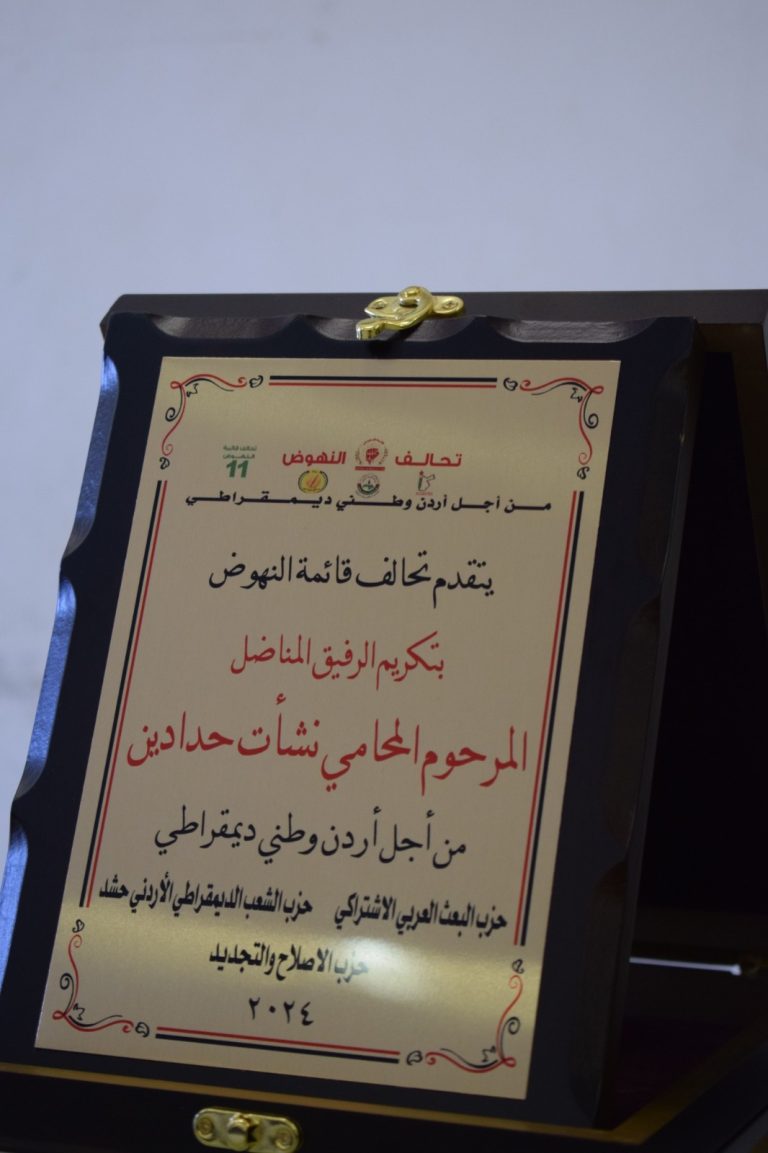 تحالف النهوض
تحالف قائمة
النهوض
11
من أجل أردن وطني ديمقراطي
يتقدم تحالف قائمة النهوض
بتكريم الرفيق المناضل
المرحوم المحامي نشأت حدادين
من أجل أردن وطني ديمقراطي
حزب البعث العربي الاشتراكي حزب الشعب الديمقراطي الأردني حشد
حزب الاصلاح والتجديد
٢٠٢٤